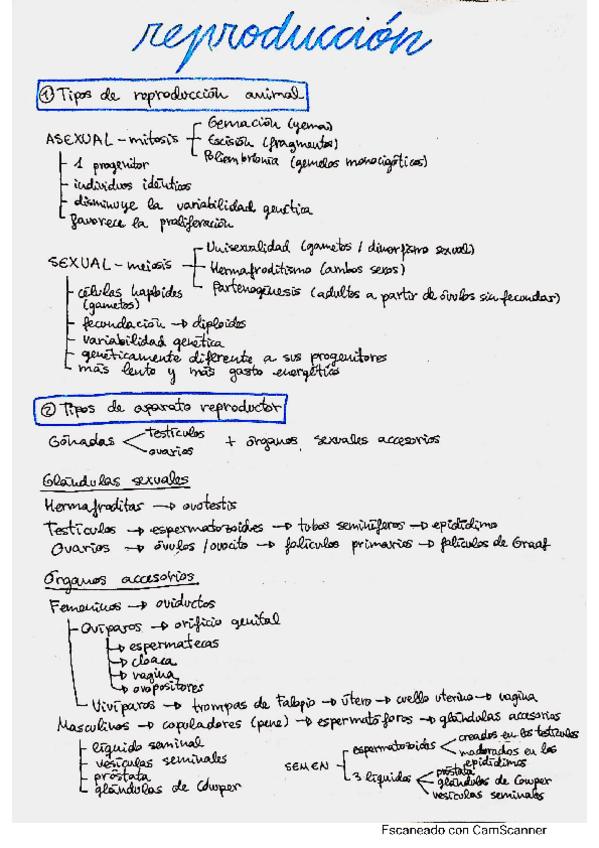 reproducción
① Tipos de reproducción animal
ASEXUAL - mitosis
Gemación (yema)
Escisión (fragmentos)
Poliembrionía (gemelos monocigóticos)
1 progenitor
individuos idénticos
disminuye la variabilidad genética
favorece la proliferación
SEXUAL - meiosis
Unisexualidad (gametos / dimorfismo sexual)
Hermafroditismo (ambos sexos)
Partenogénesis (adultos a partir de óvulos sin fecundar)
células haploides
(gametos)
fecundación → diploides
variabilidad genética
genéticamente diferente a sus progenitores
más lento y más gasto energético
② Tipos de aparato reproductor
Gónadas < testículos
ovarios
+ órganos sexuales accesorios
Glándulas sexuales
Hermafroditas → ovotestis
Testículos → espermatozoides → tubos seminíferos → epidídimo
Ovarios → óvulos / ovocito → folículos primarios → folículos de Graaf
Órganos accesorios
Femeninos → oviductos
Ovíparos → orificio genital
→ espermatecas
→ cloaca
→ vagina
→ ovopositores
Vivíparos → trompas de Falopio → útero → cuello uterino → vagina
Masculinos → copuladores (pene) → espermatóforos → glándulas accesorias
líquido seminal
vesículas seminales
próstata
glándulas de Cowper
SEMEN
espermatozoides < creados en los testículos
madorados en los
epidídimos
3 líquidos
próstata
glándulas de Cowper
vesículas seminales
Escaneado con CamScanner